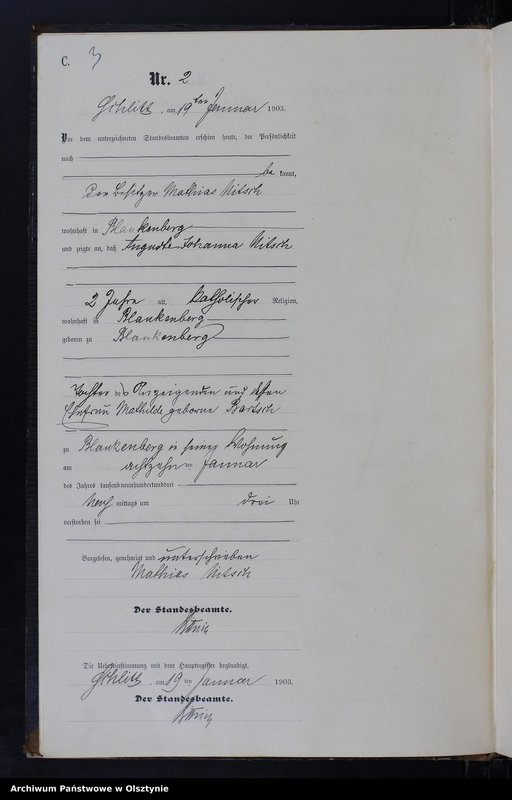 C. 3
Nr. 2
Schlitt, am 19ten Januar 1903.
Vor dem unterzeichneten Standesbeamten erschien heute, der Persönlichkeit
nach
be kannt,
der Besitzer Mathias Nitsch
wohnhaft in Blankenberg
und zeigte an, daß Auguste Johanna Nitsch
2 Jahre alt, katholischer Religion,
wohnhaft in Blankenberg
geboren zu Blankenberg
Tochter des Anzeigenden und dessen
Ehefrau Mathilde geborne Bartsch
zu Blankenberg in seiner Wohnung
am achtzehn ten Januar
des Jahres tausendneunhundertunddrei
Nach mittags um drei Uhr
verstorben sei
Vorgelesen, genehmigt und unterschrieben
Mathias Nitsch
Der Standesbeamte.
Die Uebereinstimmung mit dem Hauptregister beglaubigt,
Schlitt, am 19 ten Januar 1903.
Der Standesbeamte.
Archiwum Państwowe w Olsztynie